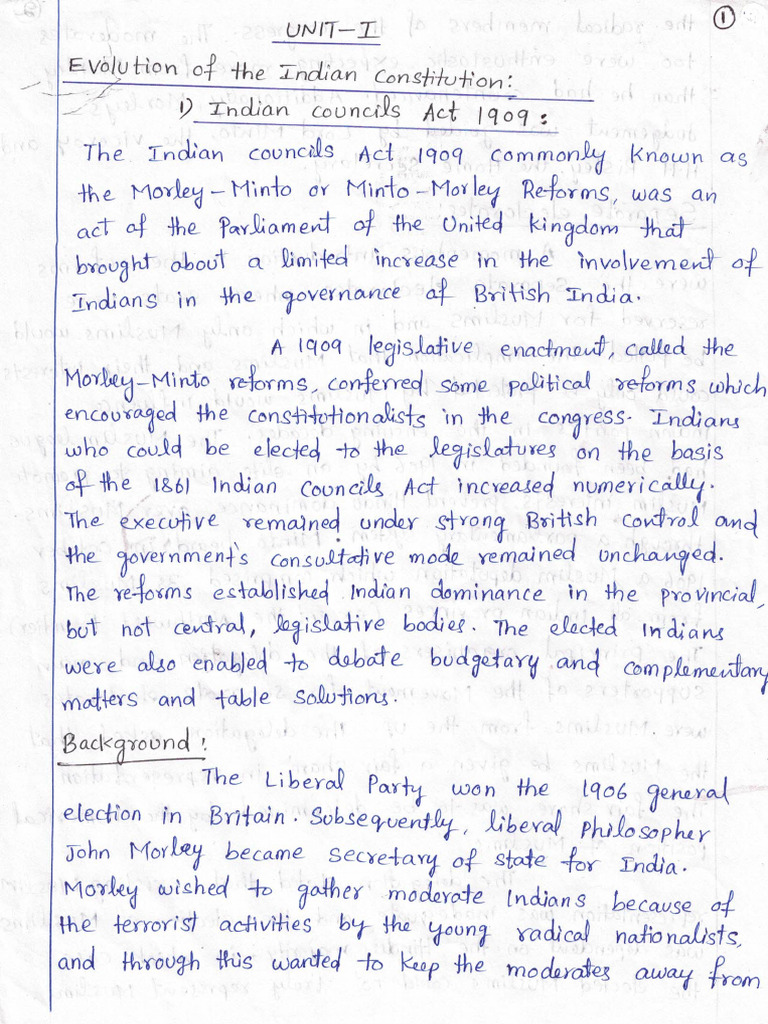 1
UNIT-I
Evolution of the Indian Constitution:
i) Indian councils Act 1909:
The Indian councils Act 1909 commonly known as
the Morley-Minto or Minto-Morley Reforms, was an
act of the Parliament of the United kingdom that
brought about a limited increase in the involvement of
Indians in the governance of British India.
A 1909 legislative enactment, called the
Morley-Minto reforms, conferred some political reforms which
encouraged the constitutionalists in the congress. Indians
who could be elected to the legislatures on the basis
of the 1861 Indian Councils Act increased numerically.
The executive remained under strong British control and
the government's consultative mode remained unchanged.
The reforms established Indian dominance in the provincial,
but not central, legislative bodies. The elected Indians
were also enabled to debate budgetary and complementary
matters and table solutions.
Background:
The Liberal Party won the 1906 general
election in Britain. Subsequently, liberal philosopher
John Morley became secretary of state for India.
Morley wished to gather moderate Indians because of
the terrorist activities by the young radical nationalists,
and through this wanted to keep the moderates away from